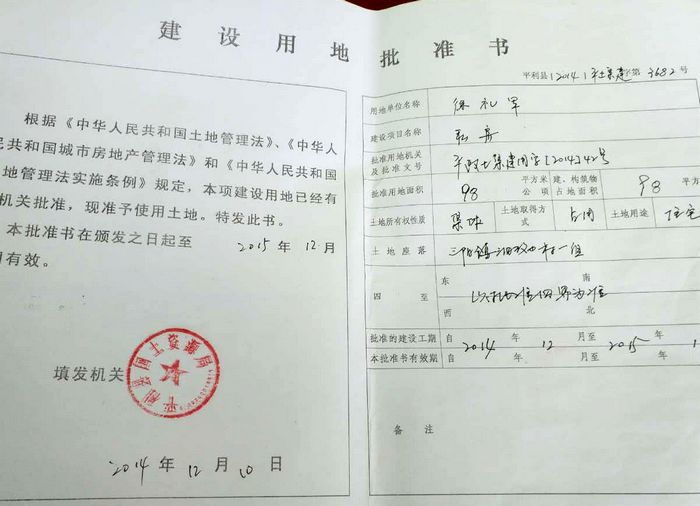 建设用地批准书
根据《中华人民共和国土地管理法》、《中华人
民共和国城市房地产管理法》和《中华人民共和国
地管理法实施条例》规定，本项建设用地已经有
机关批准，现准予使用土地。特发此书。
本批准书在颁发之日起至 2015 年 12 月
有效。
填发机关
平利县国土资源局
2014 年 12 月 10 日
平利县〔2014〕平土集建字第 3682 号
用地单位名称 徐礼军
建设项目名称 私房
批准用地机关及批准文号 平政土集建用字〔2014〕42号
批准用地面积 98 平方米 公顷 建、构筑物占地面积 98 平方
土地所有权性质 集体 土地取得方式 占用 土地用途 住宅
土地座落 三阳镇 村一组
四至 东 南 西 北
批准的建设工期 自 2014 年 12 月至 2015 年 1
本批准书有效期 自 年 月至 年
备注